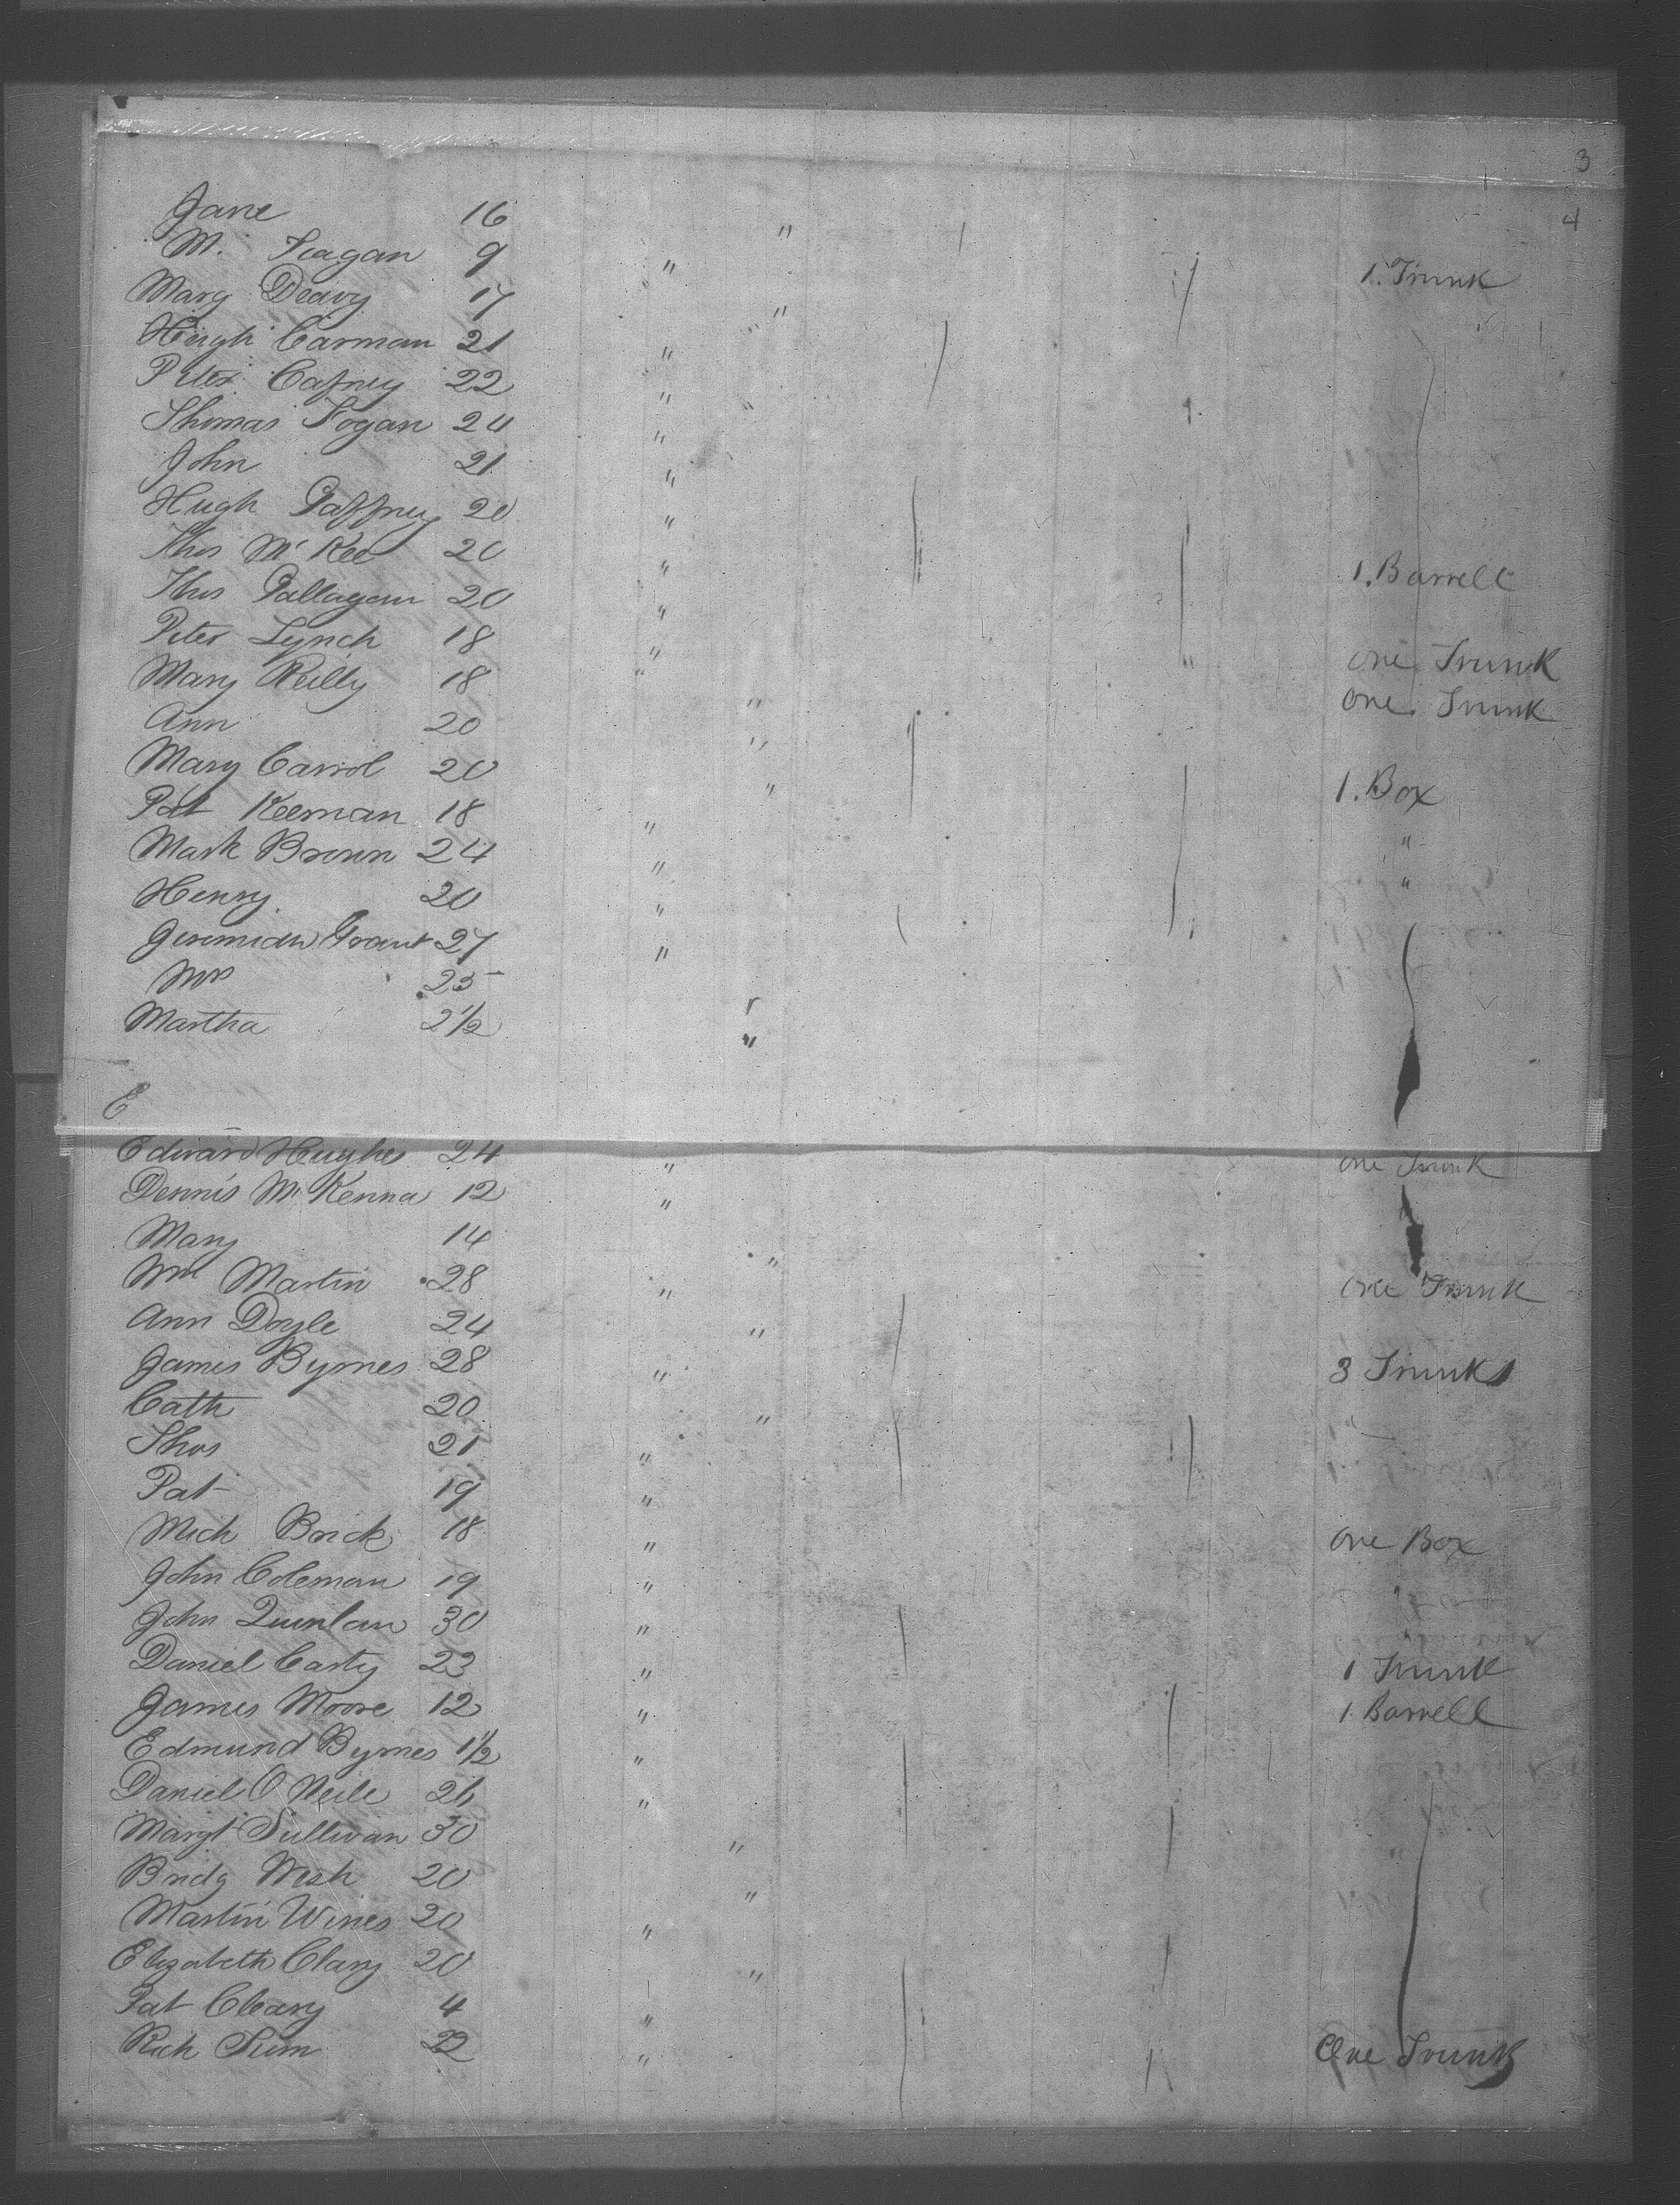 3
4
Jane 16 " 
M. Feagan 9 " 1. Trunk
Mary Deavy 17 "
Hugh Carman 21 "
Peter Cafney 22 "
Thomas Fogan 24 "
John 21 "
Hugh Gaffney 20 "
Thos McKee 20 " 1. Barrell
Thos Gallagan 20 "
Peter Lynch 18 " " one Trunk
Mary Reilly 18 " one Trunk
Ann 20 "
Mary Carrol 20 " 1. Box
Pat Keernan 18 " "
Mark Brown 24 " "
Henry 20 "
Jeremiah Grant 27 "
Mrs 25
Martha 2 1/2 "
E
Edward Hughes 24 " one Trunk
Dennis McKenna 12 "
Mary 14 "
Wm Martin 28 " one Trunk
Ann Doyle 24 "
James Byrnes 28 " 3 Trunks
Cath 20 "
Thos 21 "
Pat 19 "
Mich Brick 18 " one Box
John Coleman 19 " "
John Quinlan 30 " "
Daniel Carty 23 " 1 Trunk
James Moore 12 " 1. Barrell
Edmund Byrnes 1 1/2 "
Daniel O Neile 26 "
Margt Sullivan 30 " "
Bridg 20 "
Martin Wines 20 "
Elizabeth Clary 20 "
Pat Cleary 4 "
Rich 22 " One Trunk